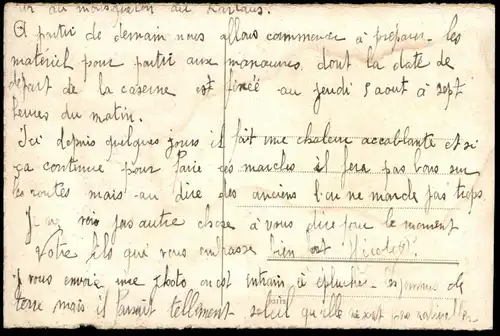 au mousqueton au
A partir de demain nous allons commencer à préparer les
matériel pour partir aux manœuvres dont la date de
départ de la caserne est fixée au jeudi 5 aout à sept
heures du matin.
Ici depuis quelques jours il fait une chaleur accablante et si
ça continue pour faire ces marches il fera pas bons sur
les routes mais au dire des anciens l'on ne marche pas trops.
Je ne vois pas autre chose à vous dire pour le moment
Votre fils qui vous embrasse bien
Je vous envoie une photo on est entrain à éplucher les pommes de
terre mais il faisait tellement soleil qu'elle